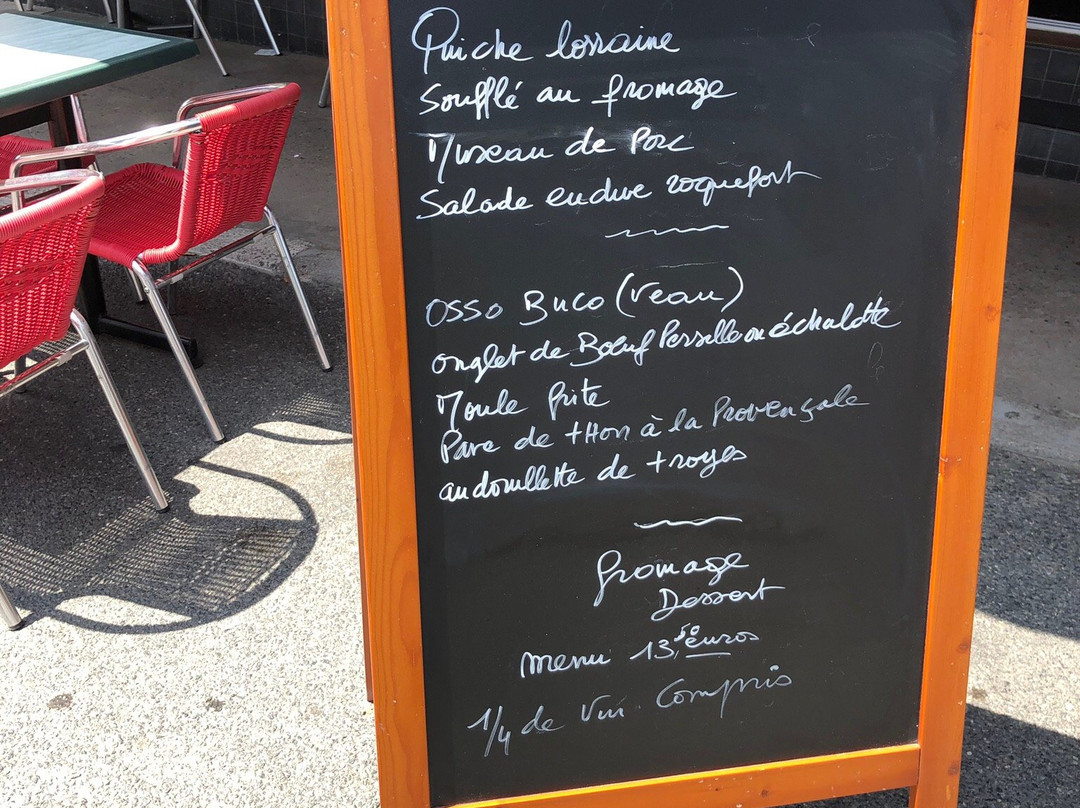 Quiche lorraine
Soufflé au fromage
Museau de Porc
Salade endive roquefort
Osso Buco (veau)
onglet de Boeuf Persillé ou échalotte
Moule frite
Pavé de tHon à la Provençale
andouillette de troyes
fromage
Dessert
menu 13,50 euros
1/4 de Vin Compris